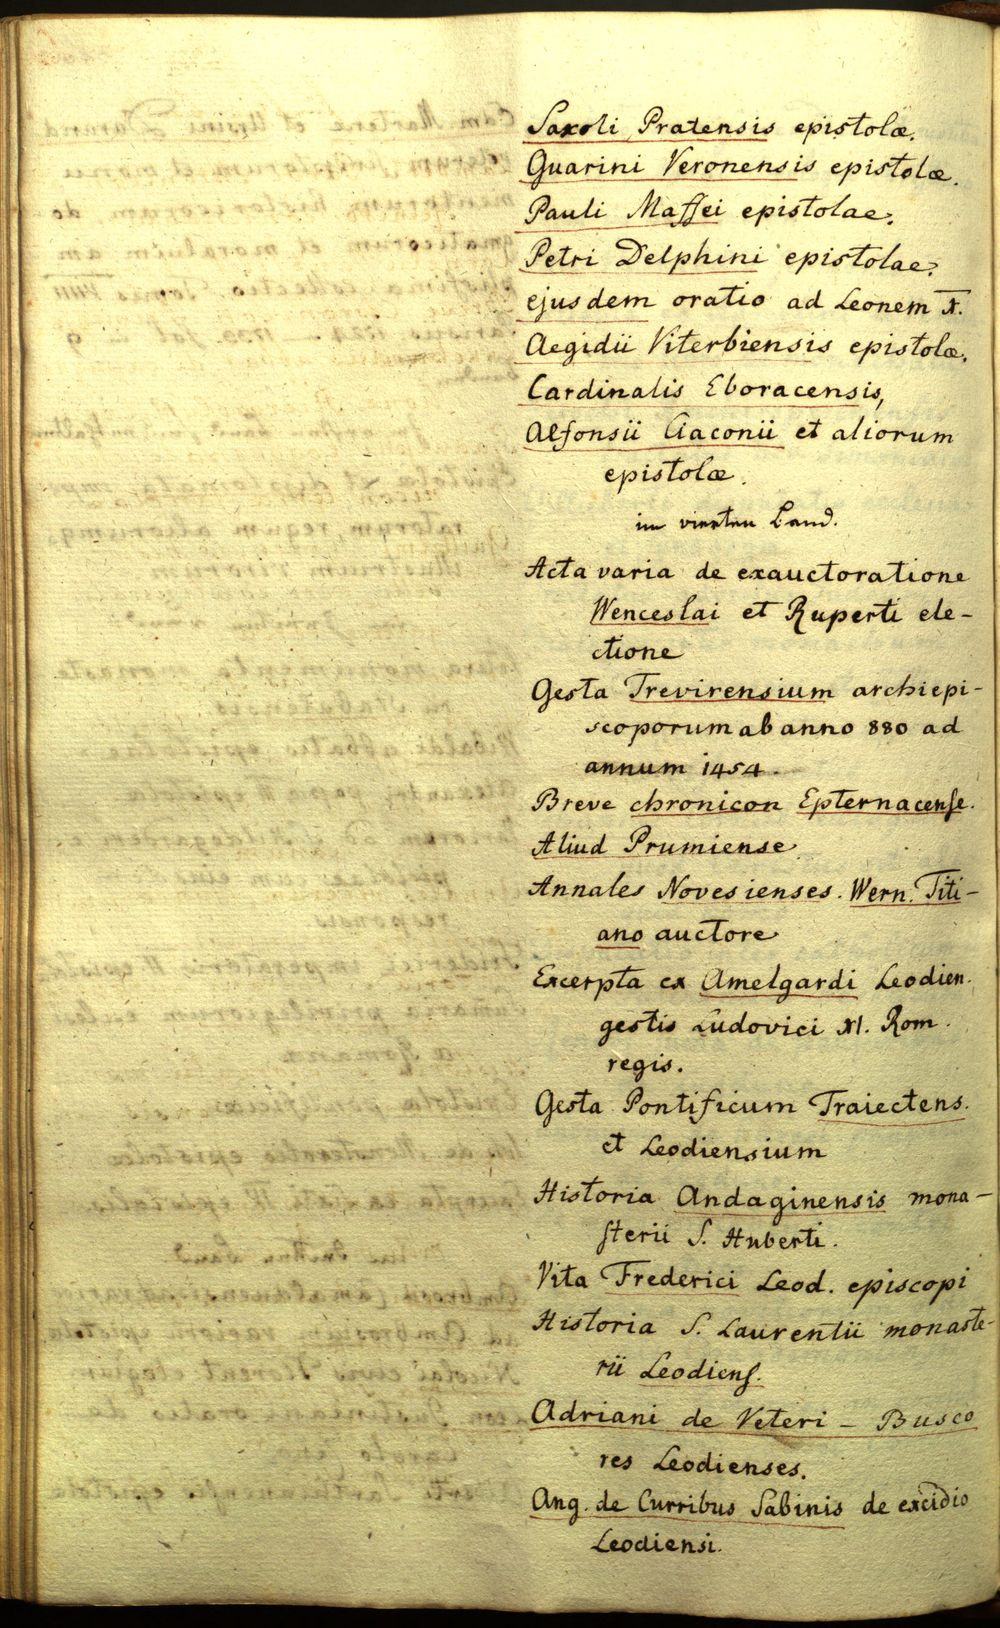 Saxoli Pratensis epistolæ.
Guarini Veronensis epistolæ.
Pauli Maffei epistolae.
Petri Delphini epistolae.
ejusdem oratio ad Leonem X.
Aegidii Viterbiensis epistolæ.
Cardinalis Eboracensis,
Alfonsii Ciaconii et aliorum
epistolæ.
im vierten Band.
Acta varia de exauctoratione
Wenceslai et Ruperti ele-
ctione
Gesta Trevirensium archiepi-
scoporum ab anno 880 ad
annum 1454.
Breve chronicon Epternacense.
Aliud Prumiense
Annales Novesienses. Wern. Titi-
ano auctore
Excerpta ex Amelgardi Leodien.
gestis Ludovici XI. Rom.
regis.
Gesta Pontificum Traiectens.
et Leodiensium
Historia Andaginensis mona-
sterii S. Huberti.
Vita Frederici Leod. episcopi
Historia S. Laurentii monaste-
rii Leodiens.
Adriani de Veteri - Busco
res Leodienses.
Ang. de Curribus Sabinis de excidio
Leodiensi.